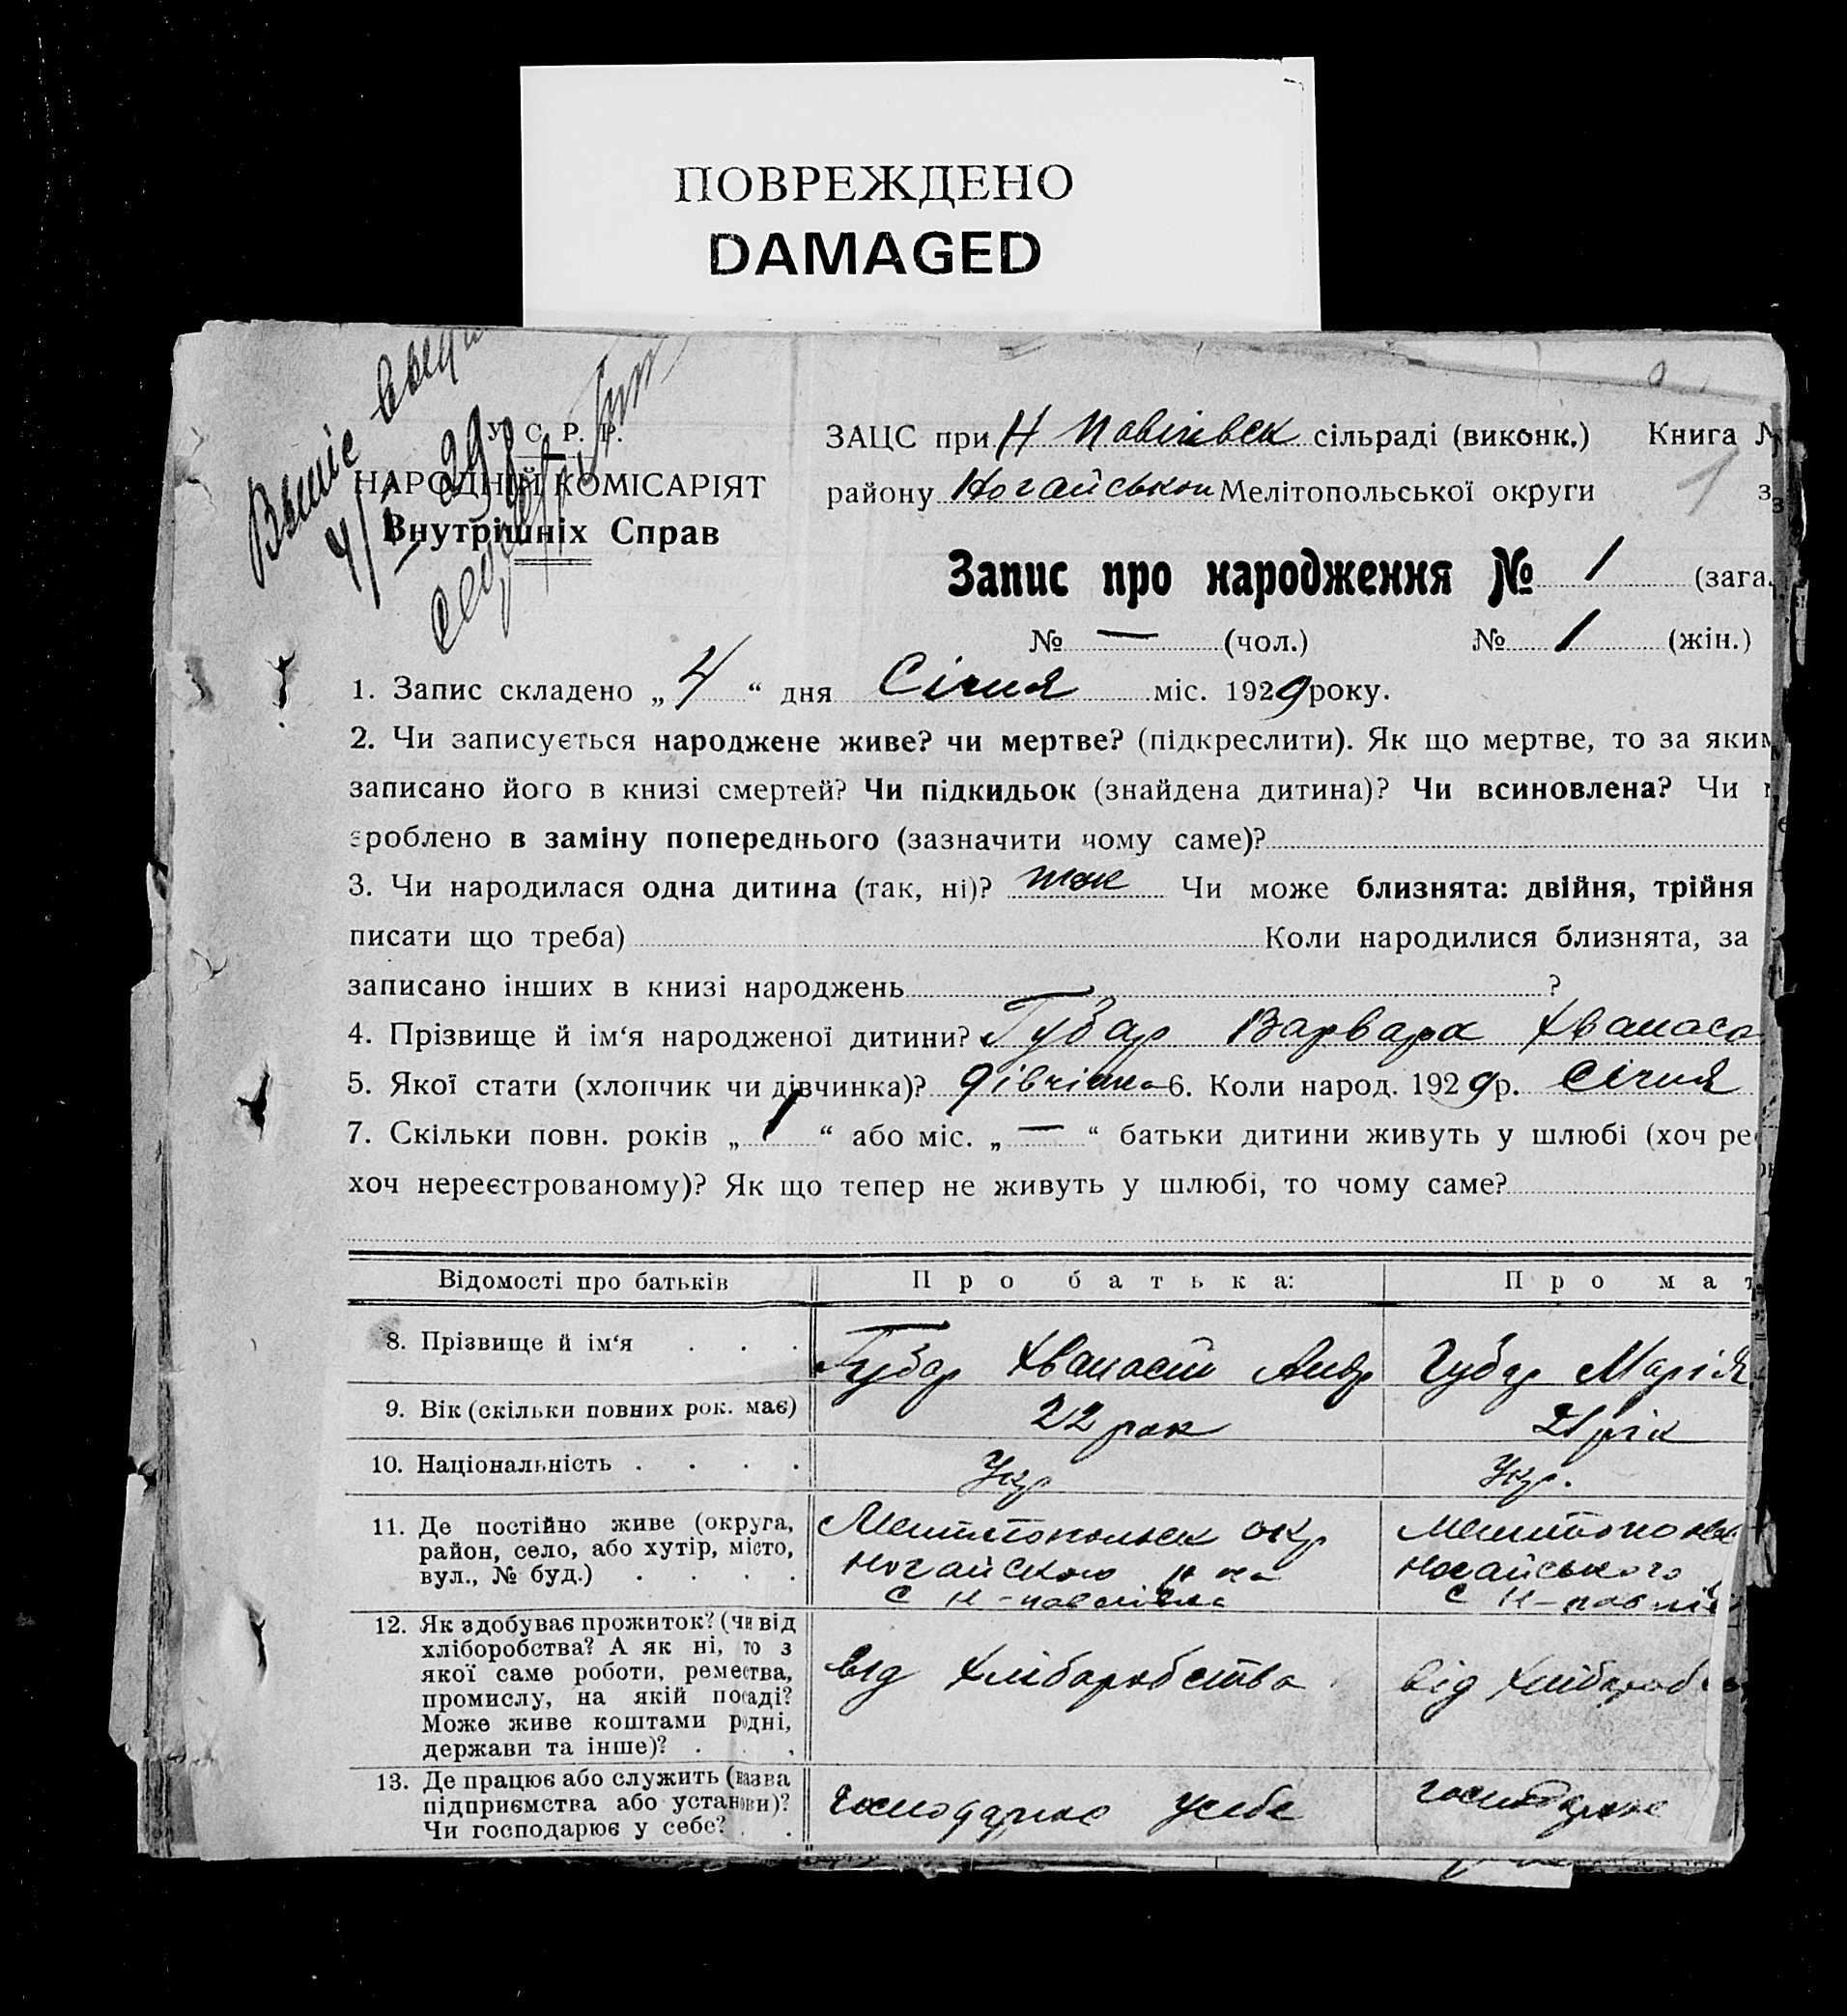 ПОВРЕЖДЕНО
DAMAGED
У. С. Р. Р.
НАРОДНІЙ КОМІСАРІЯТ
Внутрішніх Справ
ЗАЦС при Н Павлівск сільраді (виконк.) Книга №
району Ногайської Мелітопольської округи 1
Запис про народження № 1 (зага
№ — (чол.) № 1 (жін.)
1. Запис складено „ 4 “ дня Січня міс. 1929 року.
2. Чи записується народжене живе? чи мертве? (підкреслити). Як що мертве, то за яким
записано його в книзі смертей? Чи підкидьок (знайдена дитина)? Чи всиновлена? Чи
зроблено в заміну попереднього (зазначити чому саме)?
3. Чи народилася одна дитина (так, ні)? так Чи може близнята: двійня, трійня
писати що треба) Коли народилися близнята, за
записано інших в книзі народжень ?
4. Прізвище й ім‘я народженої дитини? Губар Варвара Хванаса
5. Якої стати (хлопчик чи дівчинка)? дівчінка 6. Коли народ. 1929 р. Січня
7. Скільки повн. років „ 1 “ або міс. „ — “ батьки дитини живуть у шлюбі (хоч ре
хоч нереєстрованому)? Як що тепер не живуть у шлюбі, то чому саме?
Відомості про батьків Про батька: Про мат
8. Прізвище й ім‘я . . . Губар Хванасій Андр Губар Марія
9. Вік (скільки повних рок. має) 22 рок 21 рік
10. Національність . . . . Укр Укр.
11. Де постійно живе (округа,
район, село, або хутір, місто,
вул., № буд.) . . . .
Мелітопольск окр
Ногайского
с Н-павлівка
Мелитополь
Ногайського
с Н-павлів
12. Як здобуває прожиток? (чи від
хліборобства? А як ні, то з
якої саме роботи, ремества,
промислу, на якій посаді?
Може живе коштами рідні,
держави та інше)? . . .
від хліборобства
від хлібороб
13. Де працює або служить (назва
підприємства або установи)?
Чи господарює у себе? . .
господарює у себе
господарює